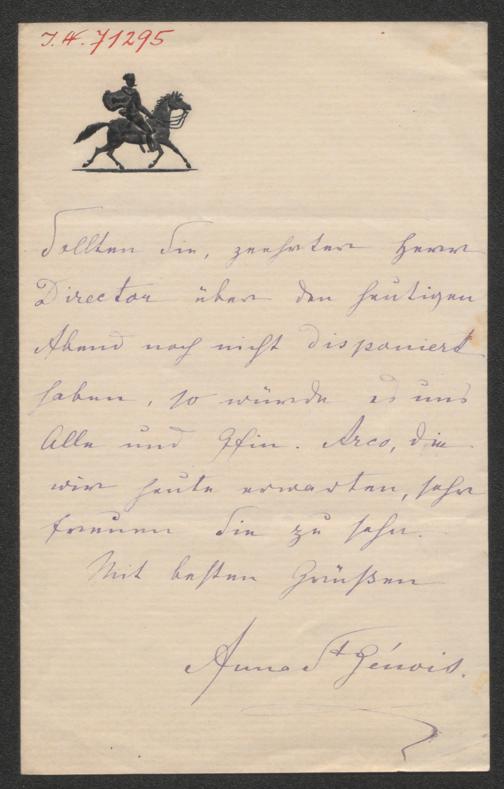 I.N. 71295
Sollten Sie, geehrter Herr
Director über den heutigen
Abend noch nicht disponiert
haben, so würde es uns
Alle und Gfin. Arco, die
wir heute erwarten, sehr
freuen Sie zu sehn.
Mit besten Grüßen
Anna St Génois.